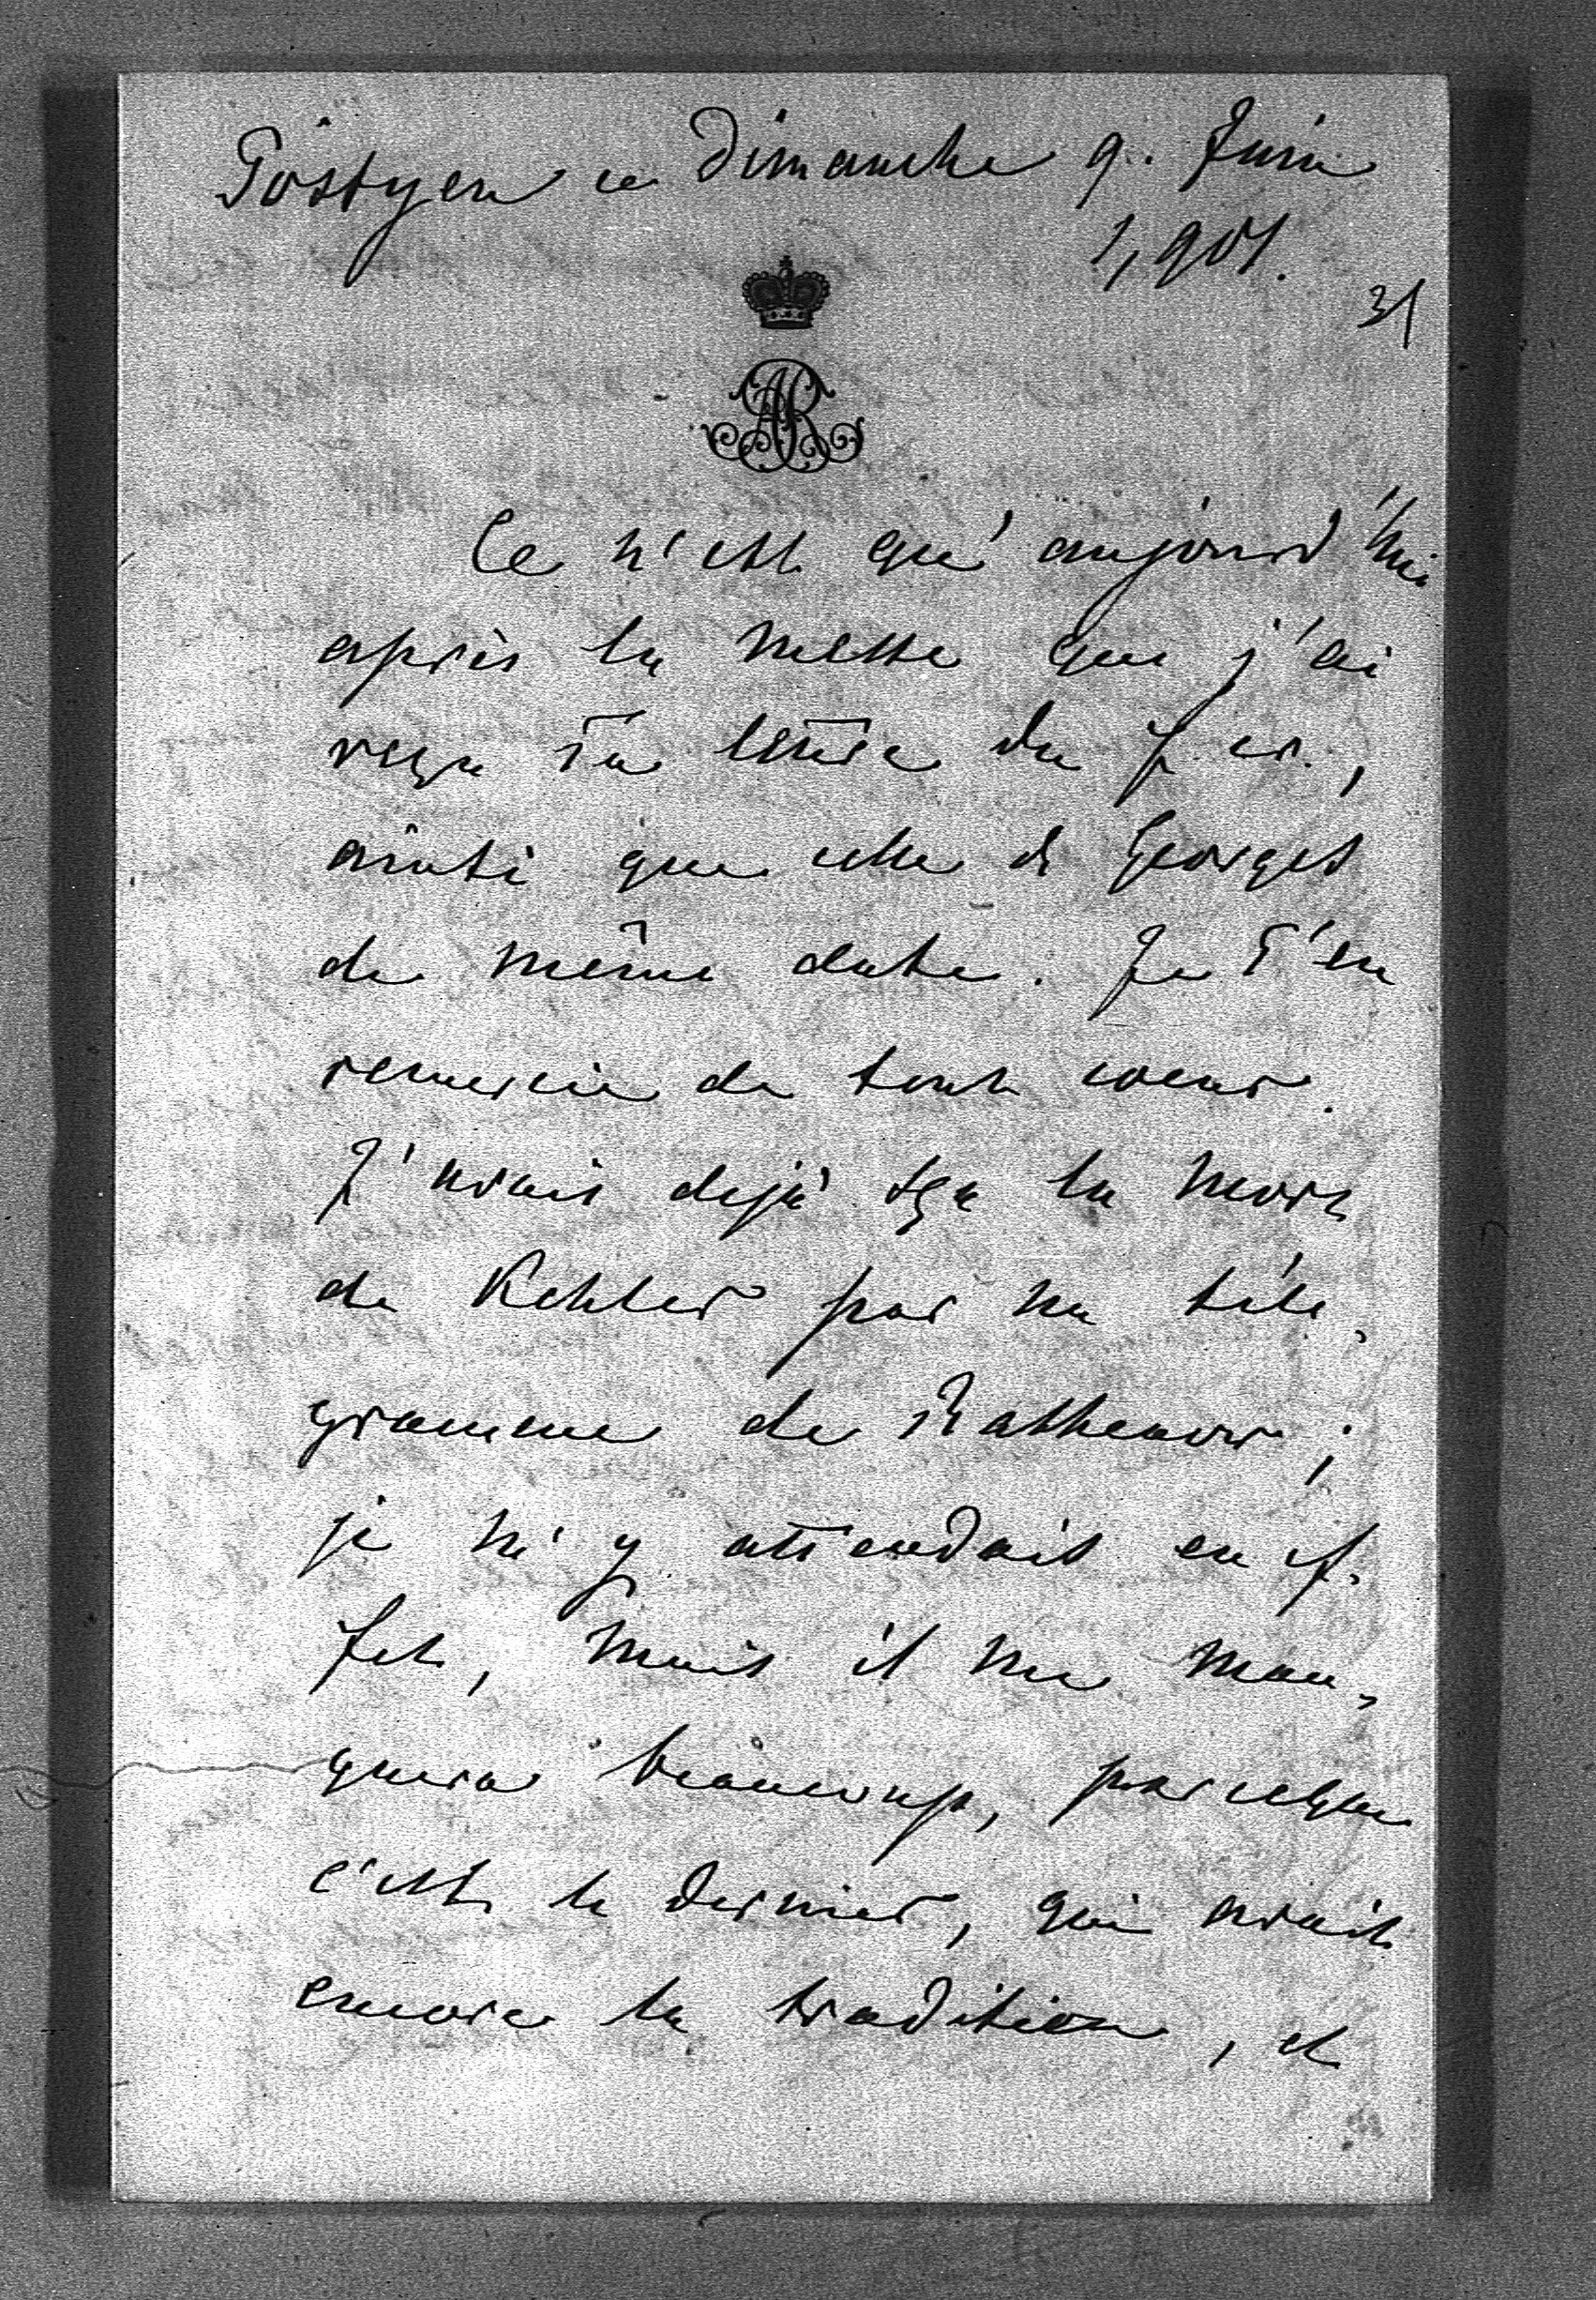 Pöstyen ce Dimanche 9. Juin
1,901.
31
AR
Ce n'est qu'aujourd'hui
après la messe que j'ai
reçu ta lettre du f. cr.,
ainsi que celle de Georges
de même date. Je t'en
remercie de tout coeur.
J'avais dejà sçu la mort
de Kohler par un télé-
gramme de Rathenow;
je m'y attendais en ef-
fet, mais il me man-
quera beaucoup, parceque
c'est le dernier, qui avait
encore la tradition, et